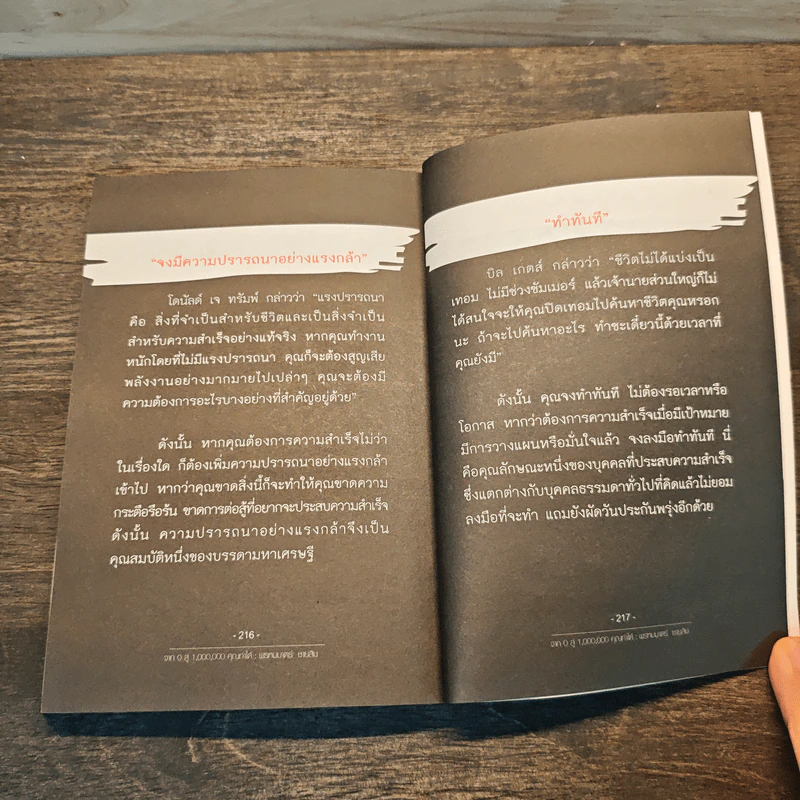 “จงมีความปรารถนาอย่างแรงกล้า”
โดนัลด์ เจ ทรัมพ์ กล่าวว่า “แรงปรารถนา
คือ สิ่งที่จำเป็นสำหรับชีวิตและเป็นสิ่งจำเป็น
สำหรับความสำเร็จอย่างแท้จริง หากคุณทำงาน
หนักโดยที่ไม่มีแรงปรารถนา คุณก็จะต้องสูญเสีย
พลังงานอย่างมากมายไปเปล่าๆ คุณจะต้องมี
ความต้องการอะไรบางอย่างที่สำคัญอยู่ด้วย”
ดังนั้น หากคุณต้องการความสำเร็จไม่ว่า
ในเรื่องใด ก็ต้องเพิ่มความปรารถนาอย่างแรงกล้า
เข้าไป หากว่าคุณขาดสิ่งนี้ก็จะทำให้คุณขาดความ
กระตือรือร้น ขาดการต่อสู้ที่อยากจะประสบความสำเร็จ
ดังนั้น ความปรารถนาอย่างแรงกล้าจึงเป็น
คุณสมบัติหนึ่งของบรรดามหาเศรษฐี
- 216 -
จาก 0 สู่ 1,000,000 คุณทำได้ :
“ทำทันที”
บิล เกตส์ กล่าวว่า “ชีวิตไม่ได้แบ่งเป็น
เทอม ไม่มีช่วงซัมเมอร์ แล้วเจ้านายส่วนใหญ่ก็ไม่
ได้สนใจจะให้คุณปิดเทอมไปค้นหาชีวิตคุณหรอก
นะ ถ้าจะไปค้นหาอะไร ทำซะเดี๋ยวนี้ด้วยเวลาที่
คุณยังมี”
ดังนั้น คุณจงทำทันที ไม่ต้องรอเวลาหรือ
โอกาส หากว่าต้องการความสำเร็จเมื่อมีเป้าหมาย
มีการวางแผนหรือมั่นใจแล้ว จงลงมือทำทันที นี่
คือคุณลักษณะหนึ่งของบุคคลที่ประสบความสำเร็จ
ซึ่งแตกต่างกับบุคคลธรรมดาทั่วไปที่คิดแล้วไม่ยอม
ลงมือที่จะทำ แถมยังผัดวันประกันพรุ่งอีกด้วย
- 217 -
จาก 0 สู่ 1,000,000 คุณทำได้ :